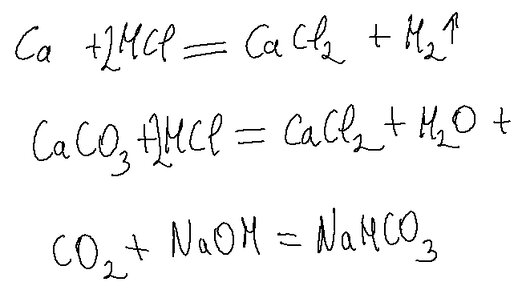 Ca + 2HCl = CaCl₂ + H₂↑
CaCO₃ + 2HCl = CaCl₂ + H₂O +
CO₂ + NaOH = NaHCO₃